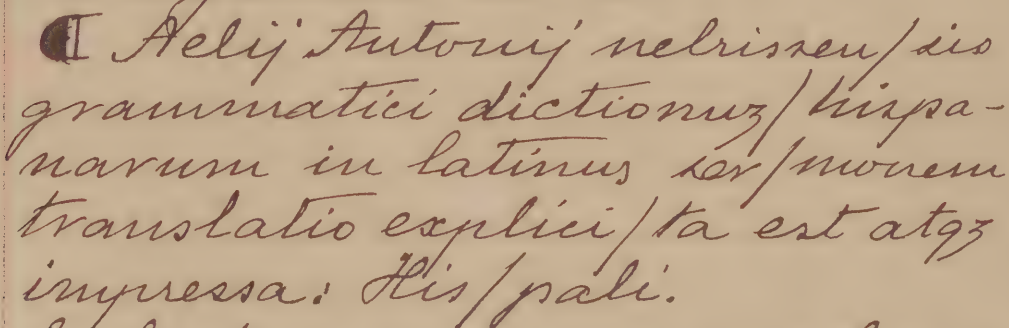 ¶ Aelij Antonij nebrissen/sis
grammatici dictionuz/hispa-
narum in latinuz ser/monem
translatio explici/ta est atqz
impressa: His/pali.